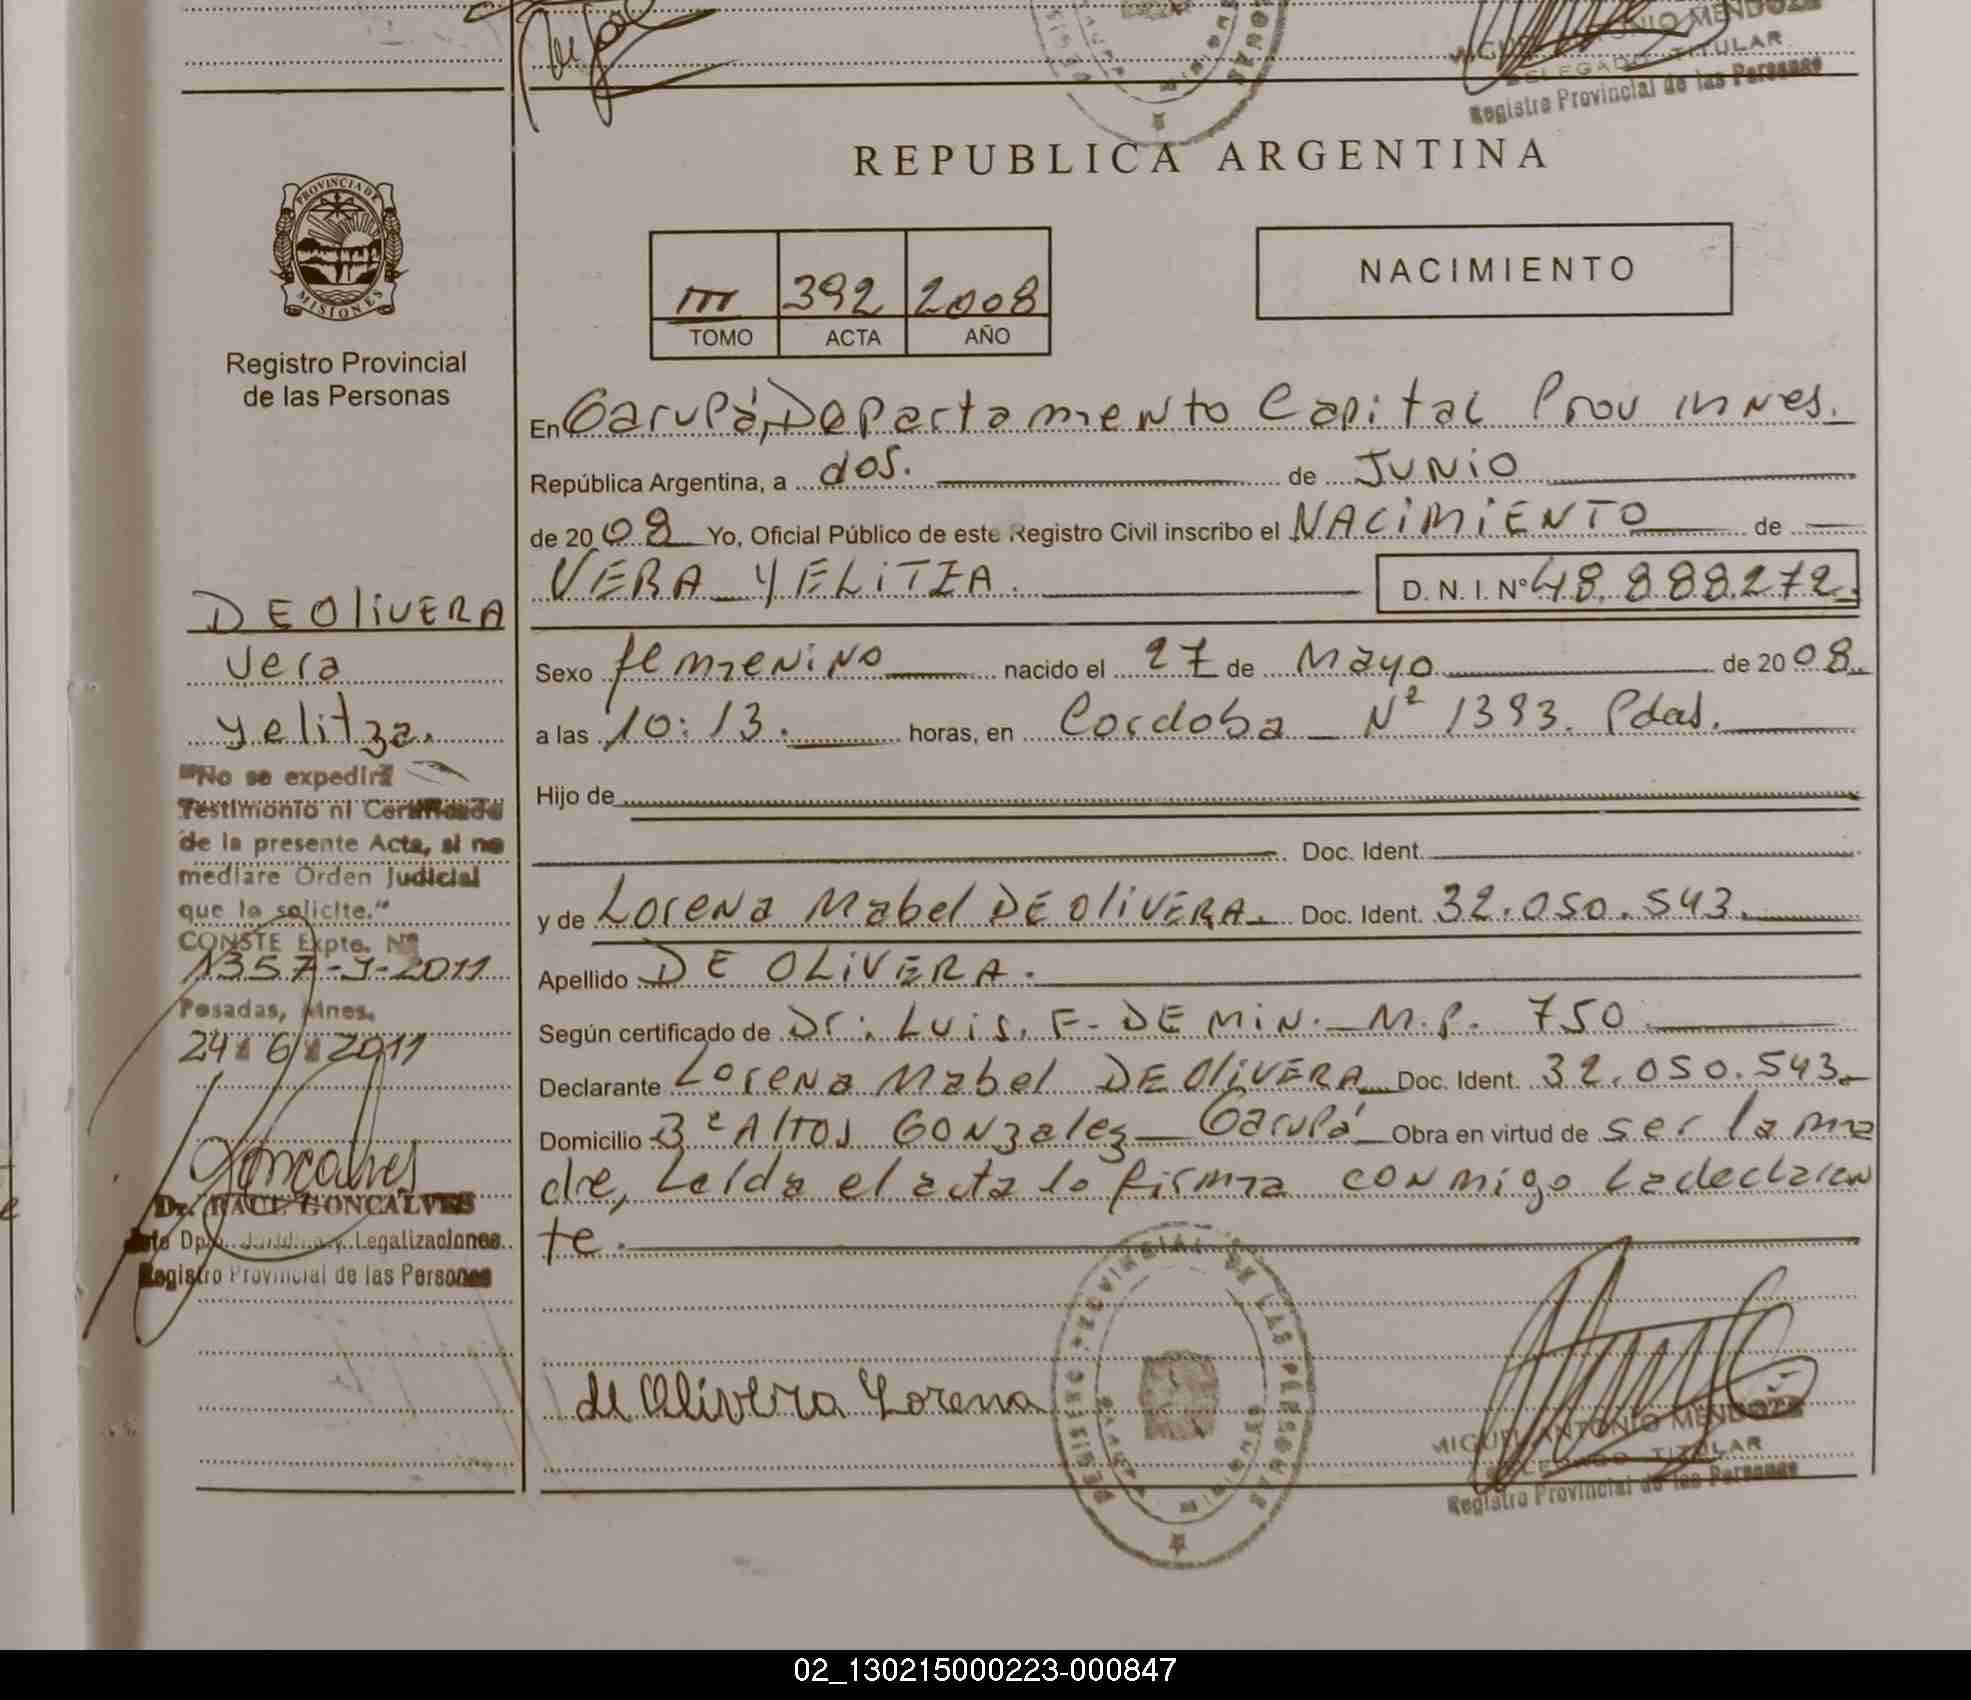 MIGUEL ANTONIO MENDOZA
DELEGADO TITULAR
Registro Provincial de las Personas
REPUBLICA ARGENTINA
PROVINCIA DE
MISIONES
Registro Provincial
de las Personas
III 392 2008
TOMO ACTA AÑO
NACIMIENTO
En Garupá, Departamento Capital Prov Mnes.
República Argentina, a dos. de Junio
de 2008 Yo, Oficial Público de este Registro Civil inscribo el NACIMIENTO de
VERA YELITZA. D. N. I. Nº 48.888.272.
DE OliVERA
Vera
Yelitza.
"No se expedirá
Testimonio ni Certificado
de la presente Acta, si no
mediare Orden Judicial
que lo solicite."
CONSTE Expte. Nº
1357-J-2011
Posadas, Mnes,
24 6 2011
Goncalves
Dr. RAUL GONCALVES
Jefe Dpto. Jurídico y Legalizaciones
Registro Provincial de las Personas
Sexo femenino nacido el 27 de Mayo de 2008.
a las 10:13. horas, en Cordoba Nº 1393. Pdas.
Hijo de
Doc. Ident.
y de Lorena Mabel DE OliVERA. Doc. Ident. 32.050.543.
Apellido DE OLiVERA.
Según certificado de Dr. Luis. F. DEMIN. M.P. 750
Declarante Lorena Mabel DE OliVERA Doc. Ident. 32.050.543.
Domicilio Bº Altos Gonzalez Garupá Obra en virtud de ser la ma
dre, Leida el acta lo firma conmigo La declaran
te.
de Olivera Lorena
REGISTRO PROVINCIAL DE LAS PERSONAS
GARUPA MISIONES
MIGUEL ANTONIO MENDOZA
DELEGADO TITULAR
Registro Provincial de las Personas
02_130215000223-000847